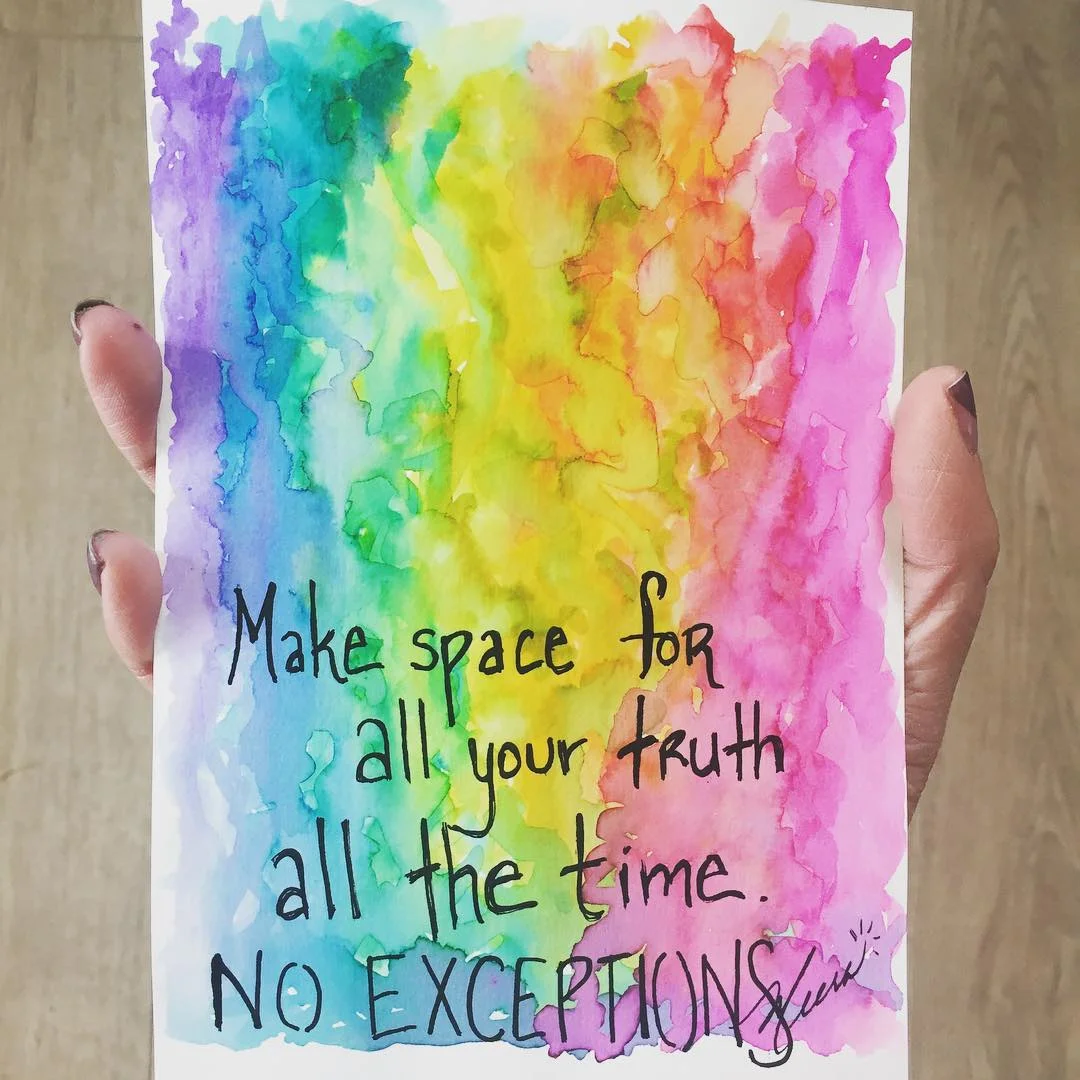 Make space for
all your truth
all the time.
NO EXCEPTIONS